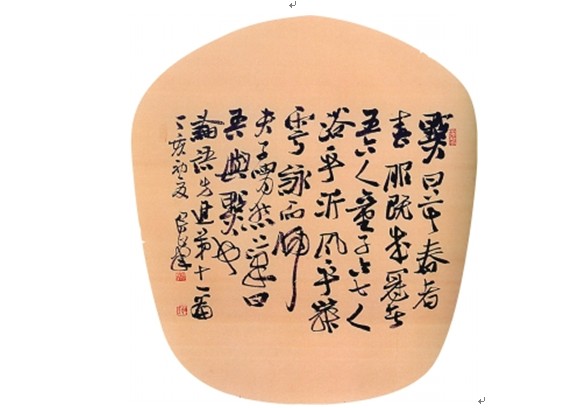 點曰莫春者
春服既成冠者
五六人童子六七人
浴乎沂風乎舞
雩詠而歸
夫子喟然嘆曰
吾與點也
論語先進第十一篇
丁亥初夏